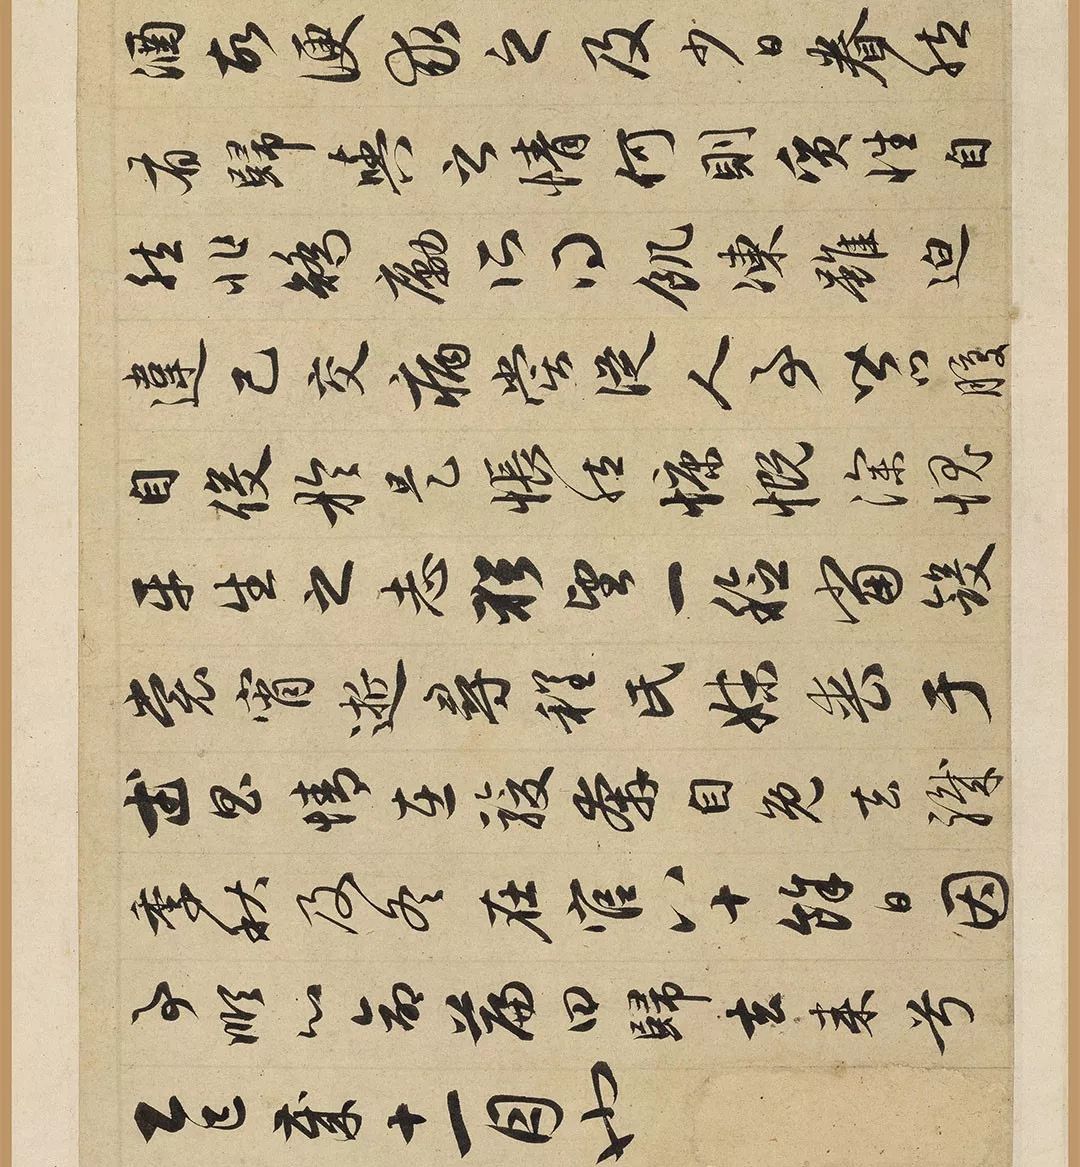 酒故便求之及少日眷然
有歸與之情何則質性自
然非矯勵所得飢凍雖迫
違己交病嘗從人事皆口腹
自役於是悵然慷慨深愧
平生之志猶望一稔當斂
裳宵逝尋程氏妹喪于
武昌情在駿奔自免去職
季秋及冬在官八十餘日因
事順心命篇曰歸去來兮
乙巳歲十一月也